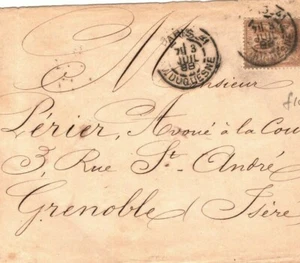 PARIS
7E 3
JUIL
88
Av. DUQUESNE
Monsieur
Lérier, Avoué à la Cou
3, Rue St. André
Grenoble (Isère